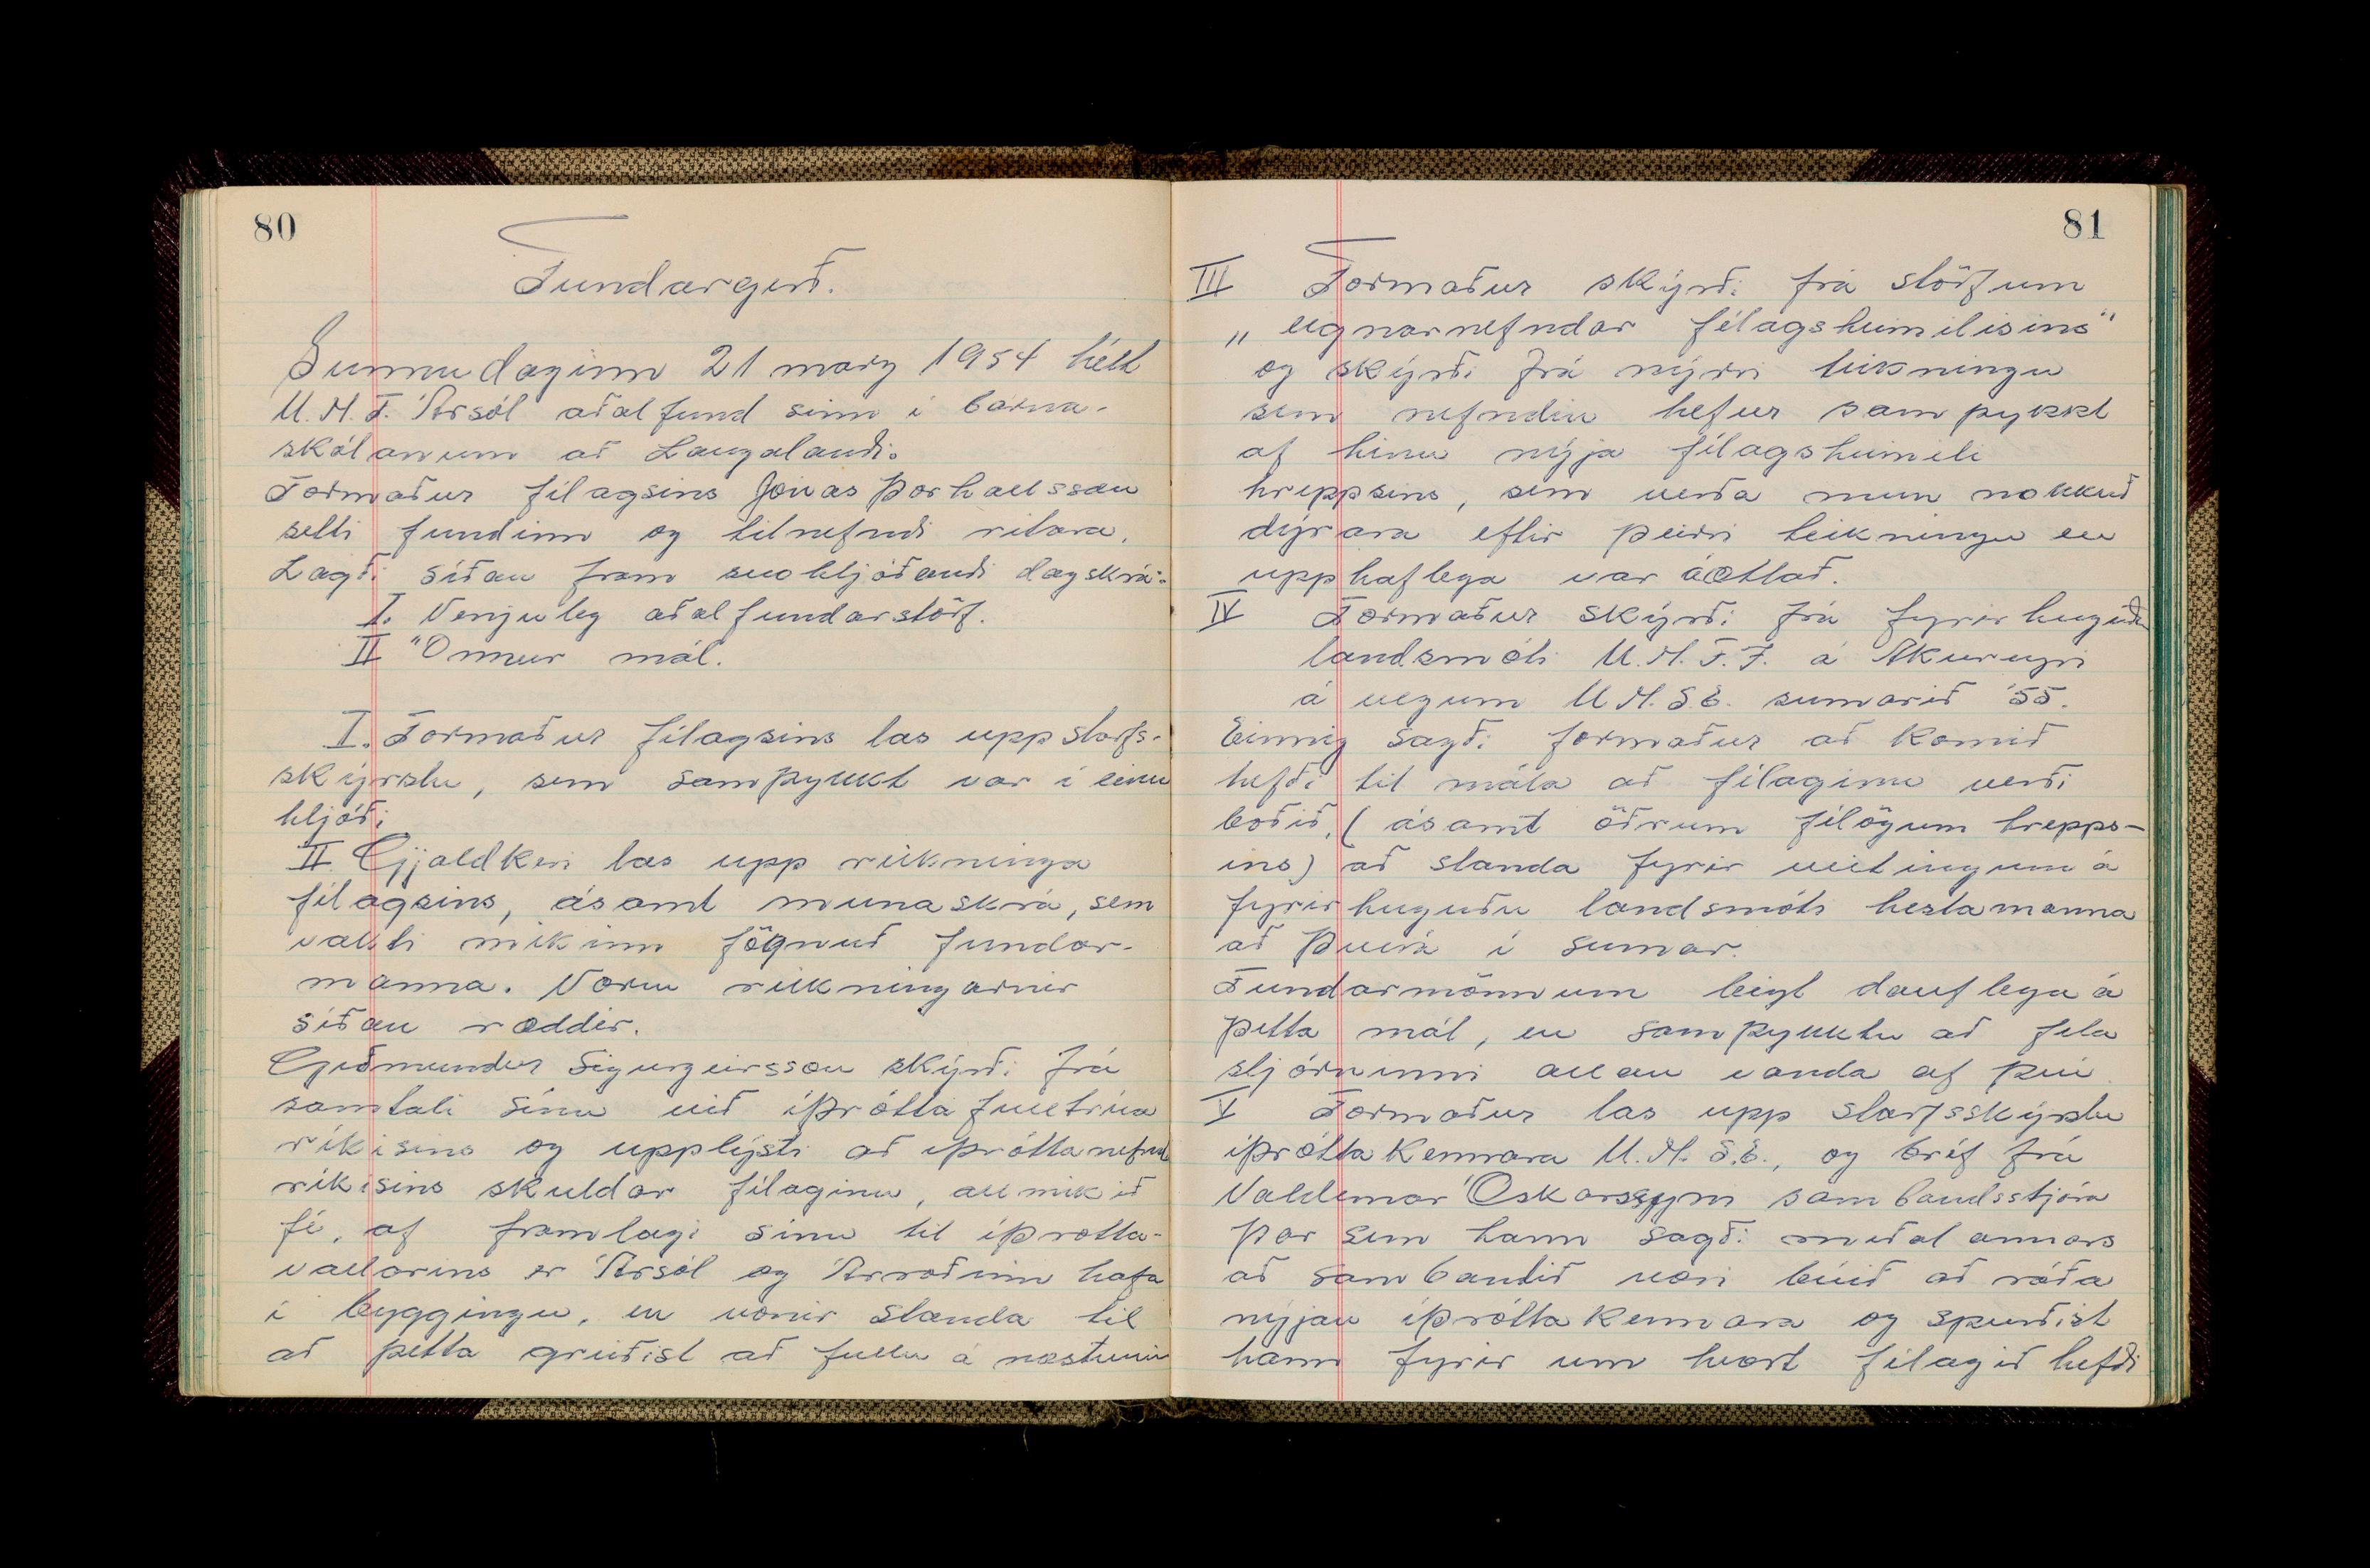 80
Fundargerð.
Sunnudaginn 21 marz 1954 hélt
U.M.F. Ársól aðalfund sinn í barna-
skólanum að Laugalandi.
Formaður félagsins Jónas Þorhallsson
setti fundinn og tilnefndi ritara.
Lagði síðan fram svohljóðandi dagskrá:
I. Venjuleg aðalfundarstörf.
II Önnur mál.
I. Formaður félagsins las upp starfs-
skýrslu, sem samþykkt var í einu
hljóði
II. Gjaldkeri las upp reikninga
félagsins, ásamt munaskrá, sem
vakti mikinn fögnuð fundar-
manna. Voru reikningarnir
síðan ræddir.
Guðmundur Sigurgeirsson skýrði frá
samtali sínu við íþróttafulltrúa
ríkisins og upplýsti að íþróttanefnd
ríkisins skuldar félaginu, allmikið
fé, af framlagi sínu til íþrotta-
vallarins er Ársól og Árroðinn hafa
í byggingu, en vonir standa til
að þetta greiðist að fullu á næstunni
81
III Formaður skýrði frá störfum
„eignarnefndar félagsheimilisins"
og skýrði frá nýrri teikningu
sem nefndin hefur samþykkt
af hinu nýja félagsheimili
hreppsins, sem verða mun nokkuð
dýrara eftir þeirri teikningu en
upphaflega var áætlað.
IV Formaður skýrði frá fyrirhuguðu
landsmóti U.M.F.Í. á Akureyri
á vegum U.M.S.E. sumarið '55.
Einnig sagði formaður að komið
hefði til mála að félaginu verði
boðið, (ásamt öðrum félögum hrepps-
ins) að standa fyrir veitingum á
fyrirhuguðu landsmóti hestamanna
að Þverá í sumar.
Fundarmönnum leizt dauflega á
þetta mál, en samþykktu að fela
stjórninni allan vanda af því
V Formaður las upp starfsskýrslu
íþróttakennara U.M.S.E., og bréf frá
Valdemar Óskarssyni sambandsstjóra
þar sem hann sagði meðal annars
að sambandið væri búið að ráða
nýjan íþróttakennara og spurðist
hann fyrir um hvort félagið hefði